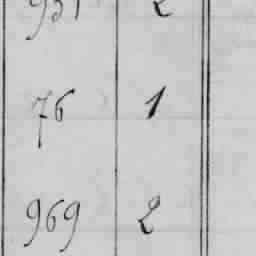 931 2
76 1
969 2